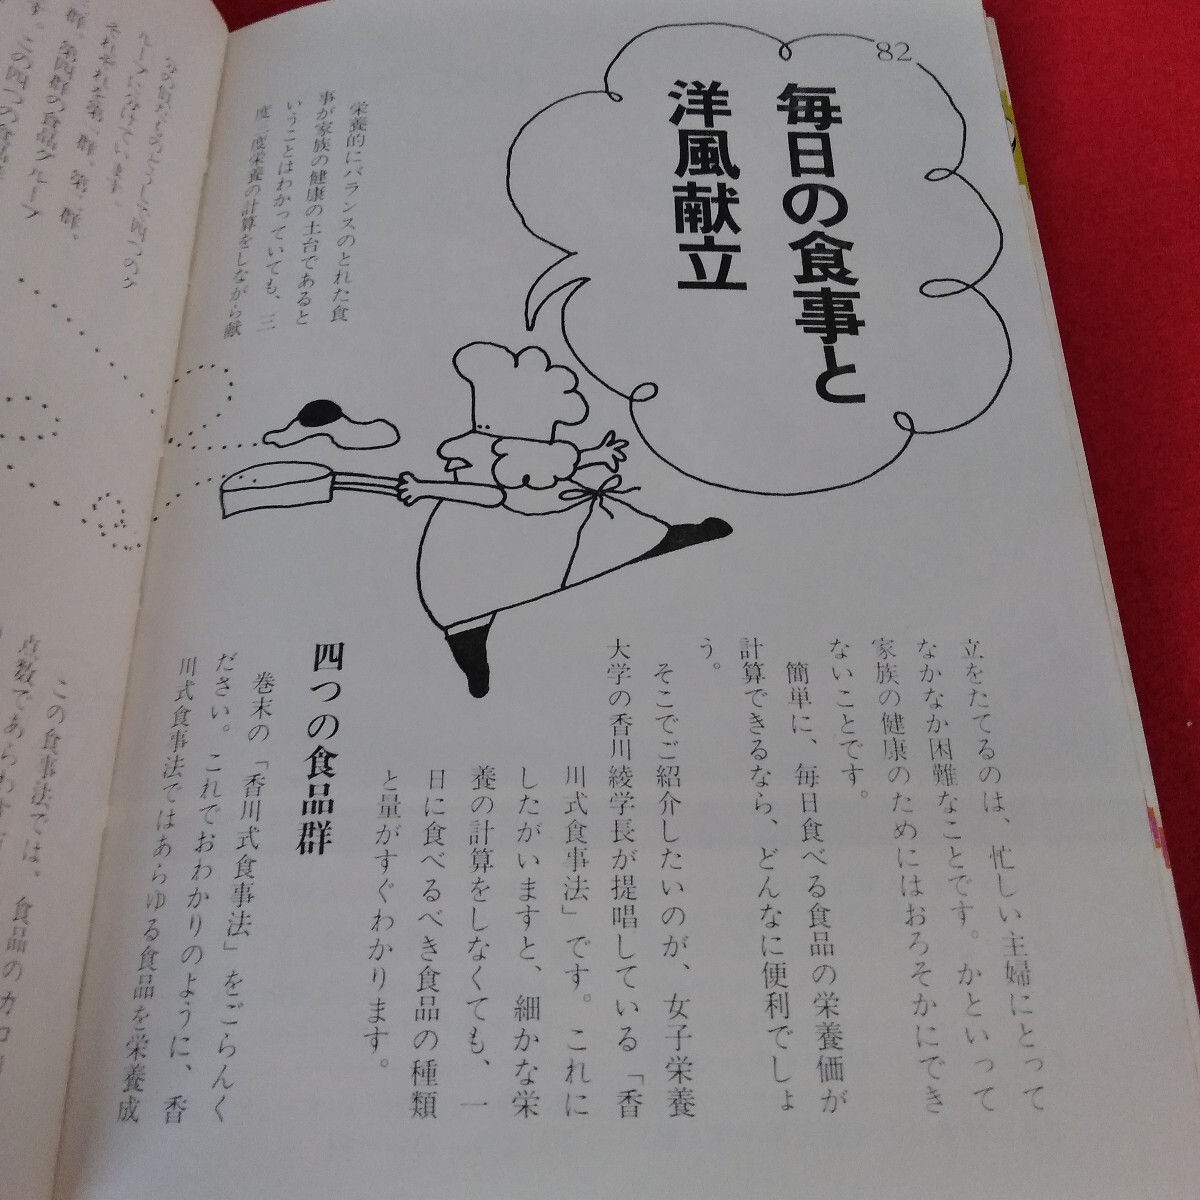 82
毎日の食事と
洋風献立
栄養的にバランスのとれた食
事が家族の健康の土台であると
いうことはわかっていても、三
度三度栄養の計算をしながら献
立をたてるのは、忙しい主婦にとって
なかなか困難なことです。かといって
家族の健康のためにはおろそかにでき
ないことです。
簡単に、毎日食べる食品の栄養価が
計算できるなら、どんなに便利でしょ
う。
そこでご紹介したいのが、女子栄養
大学の香川綾学長が提唱している「香
川式食事法」です。これに
したがいますと、細かな栄
養の計算をしなくても、一
日に食べるべき食品の種類
と量がすぐわかります。
四つの食品群
巻末の「香川式食事法」をごらんく
ださい。これでおわかりのように、香
川式食事法ではあらゆる食品を栄養成
ループにわけています。
群、第四群の食品グループ
この四つの食品
この食事法では、食品のカロリ
点数であらわす